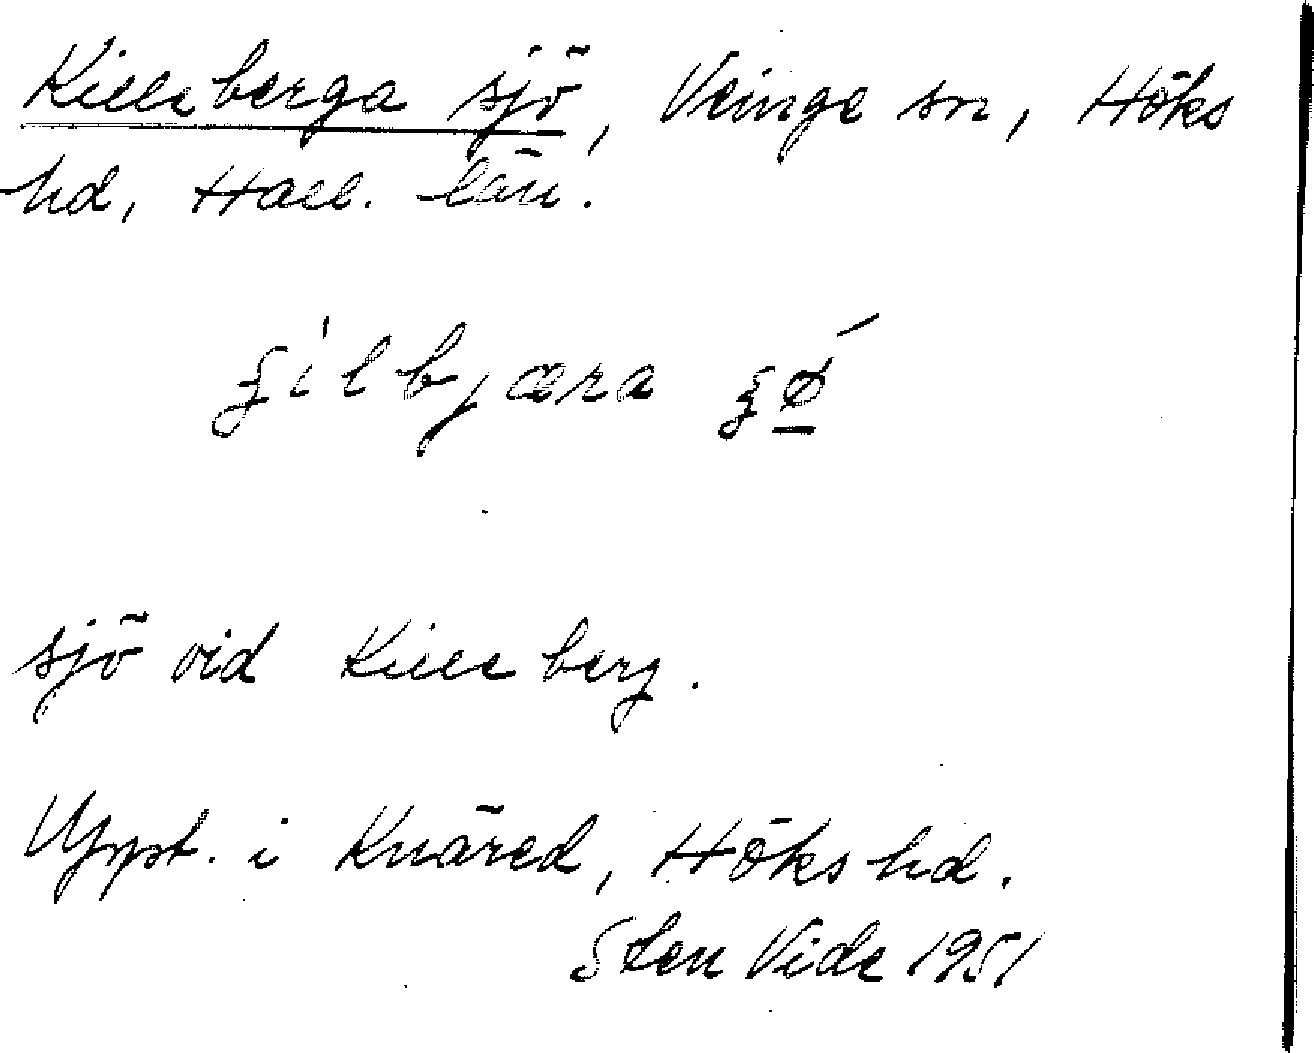 Killeberga sjö, Veinge sn, Höks
hd, Hall. län.
sjö vid Killeberg.
Uppt. i Knäred, Höks hd.
Sten Vide 1951